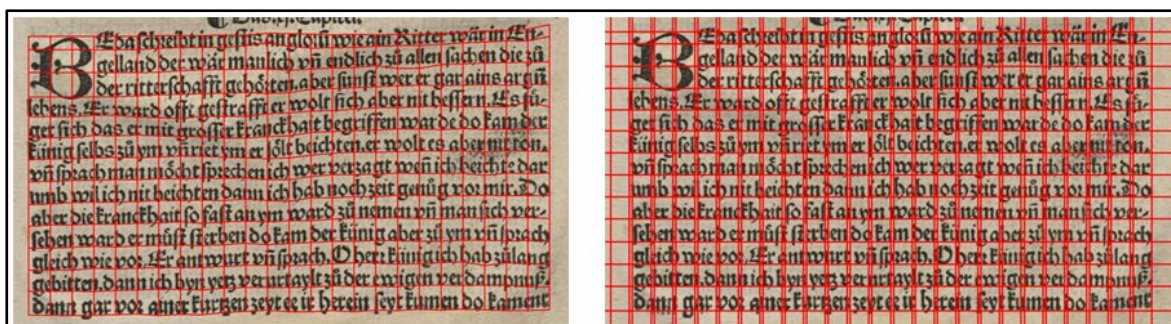 BEda schreibt in gestis anglorū wie ain Ritter wär in En-
gelland der wär manlich vñ endlich zů allen sachen die zů
der ritterschafft gehörten.aber sunst wer er gar ains argñ
lebens. Er ward offt gestrafft er wolt sich aber nit bessern. Es fů-
get sich das er mit grosser kranckhait begriffen warde do kam der
künig selbs zů ym vñ riet ym er sölt beichten. er wolt es aber nit ton.
vñ sprach man möcht sprechen ich wer verzagt weñ ich beichte dar
umb wil ich nit beichten dann ich hab noch zeit genůg vor mir. Do
aber die kranckhait so fast an ym ward zů nemen vñ man sich ver-
sehen ward er müst sterben do kam der künig aber zů ym vñ sprach
gleich wie vor. Er antwurt vñ sprach. O herr künig ich hab zů lang
gebitten. dann ich byn yetz verurtaylt zů der ewigen verdamnuß.
dann gar vor ainer kurtzen zeyt ee ir herein seyt kumen do kament
BEda schreibt in gestis anglorū wie ain Ritter wär in En-
gelland der wär manlich vñ endlich zů allen sachen die zů
der ritterschafft gehörten.aber sunst wer er gar ains argñ
lebens. Er ward offt gestrafft er wolt sich aber nit bessern. Es fů-
get sich das er mit grosser kranckhait begriffen warde do kam der
künig selbs zů ym vñ riet ym er sölt beichten. er wolt es aber nit ton.
vñ sprach man möcht sprechen ich wer verzagt weñ ich beichte dar
umb wil ich nit beichten dann ich hab noch zeit genůg vor mir. Do
aber die kranckhait so fast an ym ward zů nemen vñ man sich ver-
sehen ward er müst sterben do kam der künig aber zů ym vñ sprach
gleich wie vor. Er antwurt vñ sprach. O herr künig ich hab zů lang
gebitten. dann ich byn yetz verurtaylt zů der ewigen verdamnuß.
dann gar vor ainer kurtzen zeyt ee ir herein seyt kumen do kament